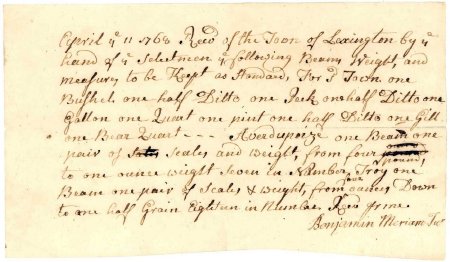 April yᵉ 11 1768 Recd of the Town of Lexington by yᵉ
hand of yᵉ Selectmen yᵉ following Beams Weight, and
measures to be Kept as Standard, For sd Town one
Bushel one half Ditto one Peck one half Ditto one
Gallon one Quart one pint one half Ditto one Gill
one Bear Quart - - - Averdupoize one Beam one
pair of Scales and Weight, from four pounds,
to one ounce weight Seven in Number, Troy one
Beam one pair of Scales & weight, from four ounces Down
to one half Grain Eighteen in Number Recd pr me
Benjamin Meriam